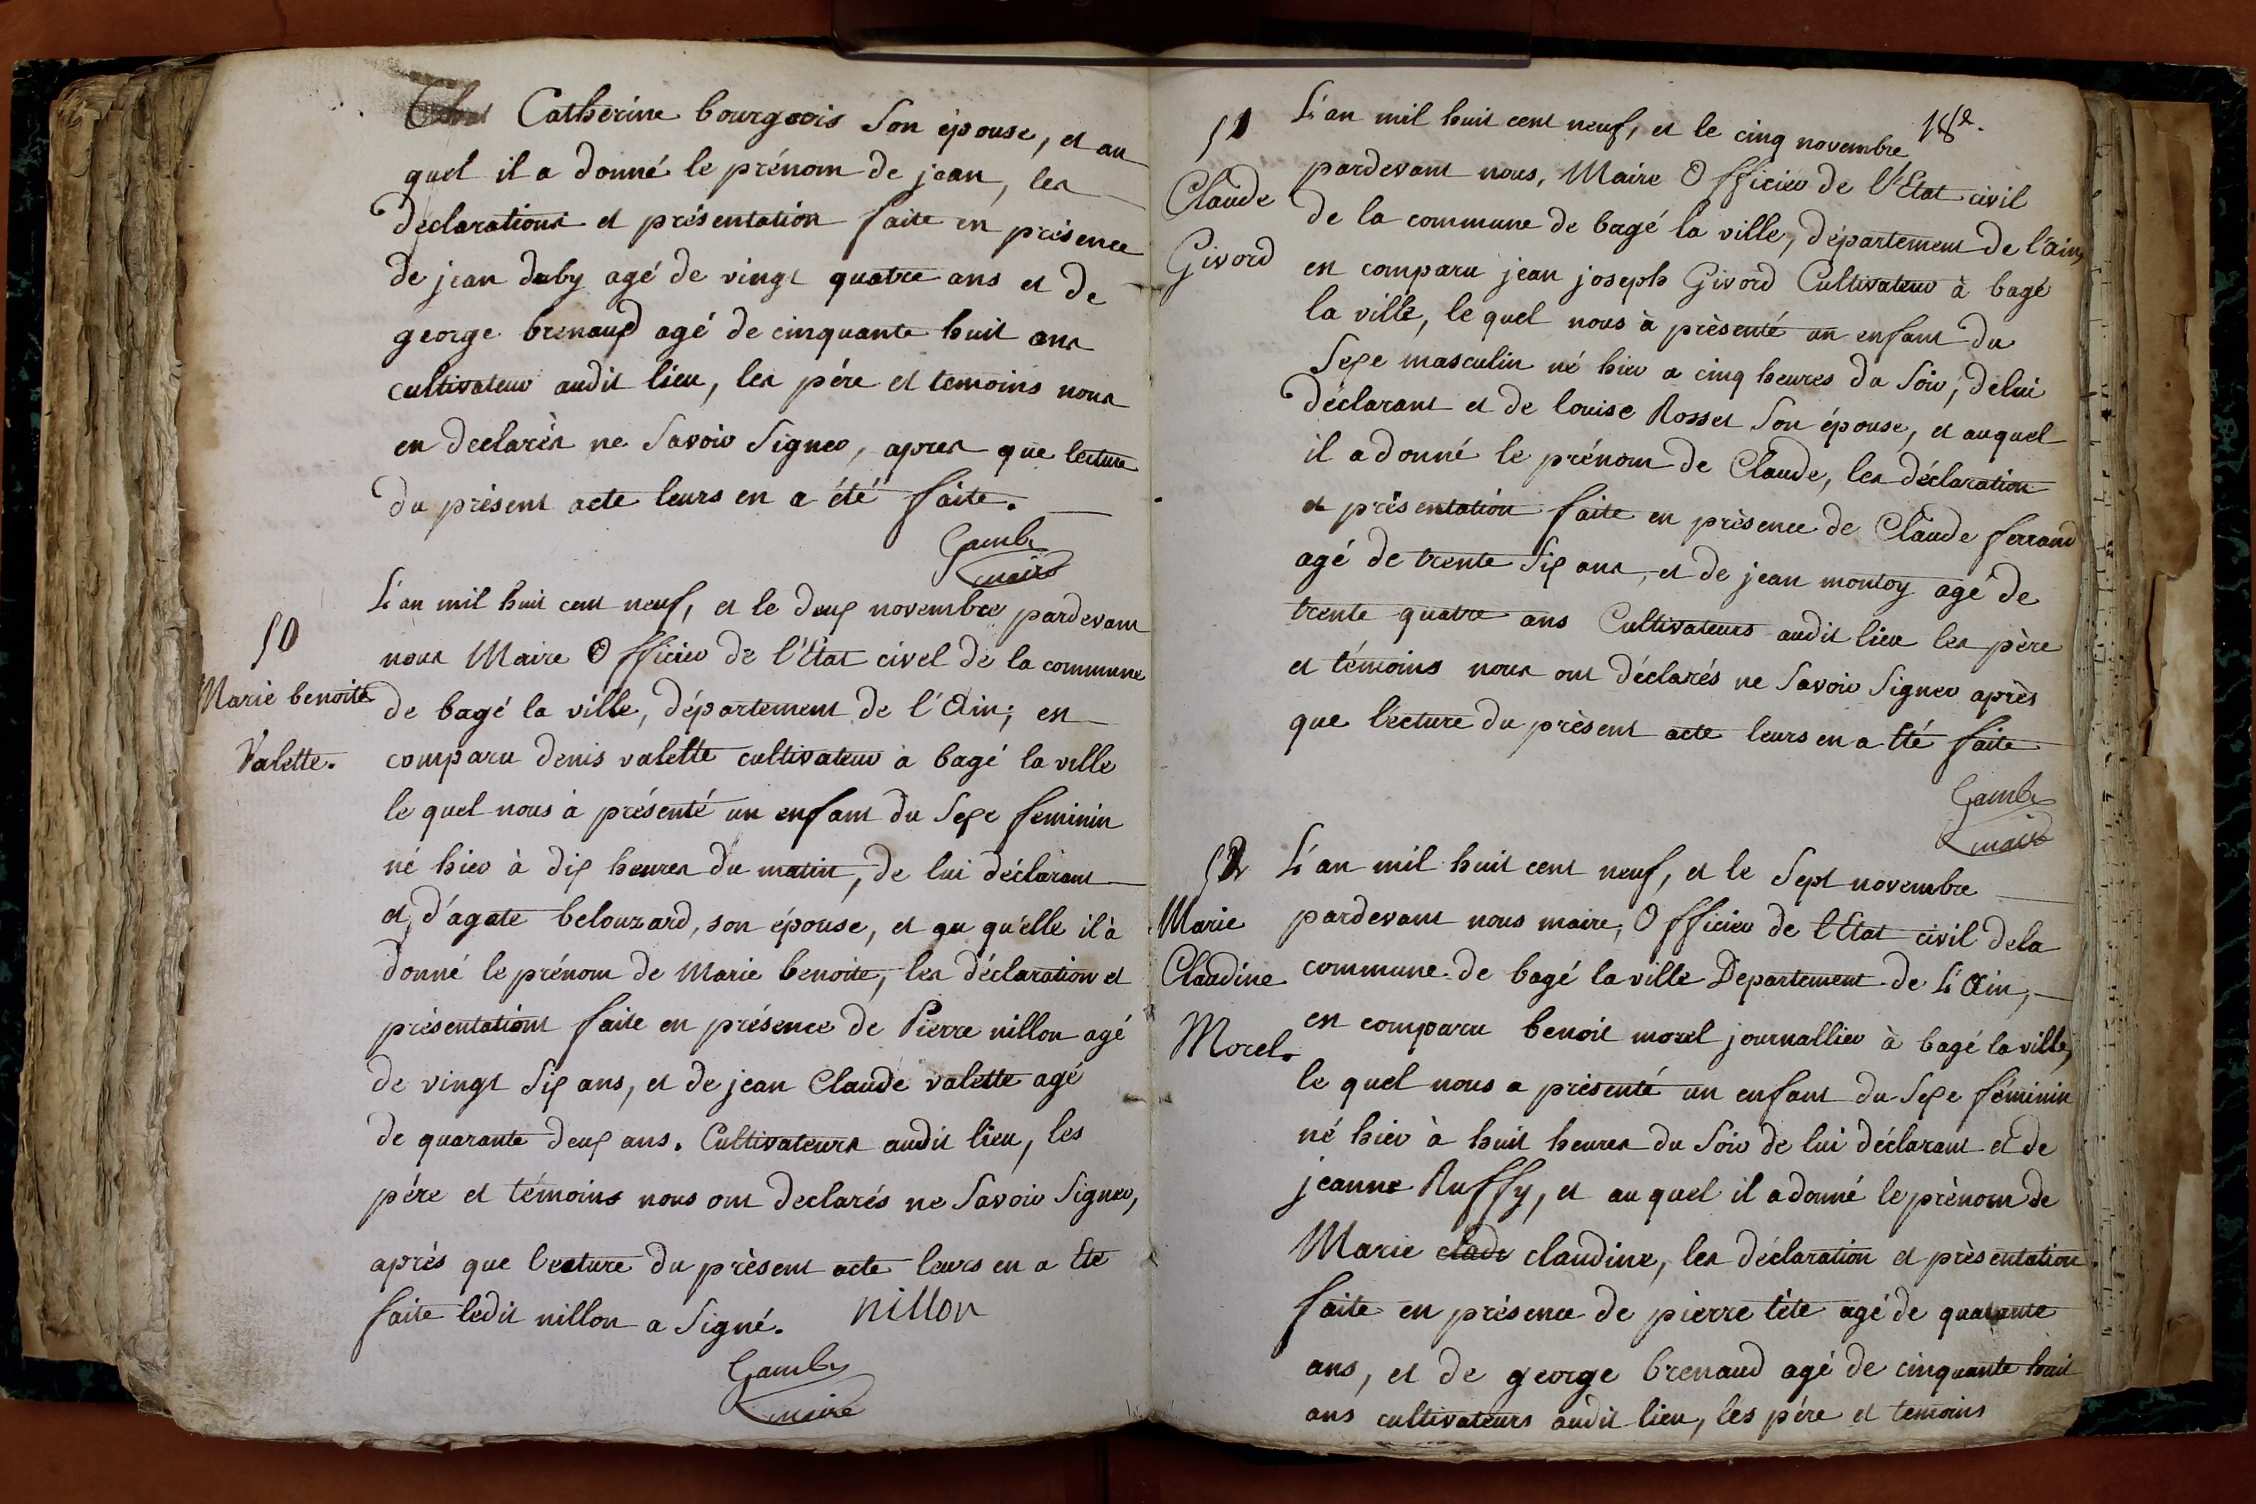 Catherine bourgeois Son épouse, et au
quel il a donné le prénom de jean, les
déclarations et présentation faite en présence
de jean duby agé de vingt quatre ans et de
george brenaud agé de cinquante huit ans
cultivateur audit lieu, les pére et temoins nous
en declarés ne Savoir Signer, apres que lecture
du présent acte leurs en a été faite.
Gamby
maire
50
Marie benoite
Valette.
L'an mil huit cent neuf, et le deux novembre pardevant
nous Maire Officier de l'État civel de la commune
de bagé la ville, département de l'Ain; en
comparu denis valette cultivateur à bagé la ville
le quel nous à présenté un enfant du Sexe feminin
né hier à dix heures du matin, de lui déclarant
et d'agate belouzard, son épouse, et au qu'elle il à
donné le prénom de Marie benoite, les déclaration et
présentations faite en présence de Pierre nillon agé
de vingt Six ans, et de jean Claude valette agé
de quarante deux ans. Cultivateurs audit lieu, les
pére et témoins nous ont declarés ne Savoir Signer,
aprés que lecture du présent acte leurs en a été
faite ledit nillon a Signé. nillon
Gamby
maire
18e.
51
Claude
Givord
L'an mil huit cent neuf, et le cinq novembre
pardevant nous, Maire Officier de l'Etat civil
de la commune de bagé la ville, département de l'ain,
en comparu jean joseph Givord Cultivateur à bagé
la ville, le quel nous à présenté un enfant du
Sexe masculin né hier a cinq heures du Soir, de lui
déclarant et de louise Rosset Son épouse, et auquel
il a donné le prénom de Claude, les déclaration
et présentation faite en présence de Claude ferrand
agé de trente Six ans, et de jean montoy agé de
trente quatre ans Cultivateurs audit lieu les père
et témoins nous ont déclarés ne Savoir Signer après
que lecture du présent acte leurs en a été faite
Gamby
maire
52
Marie
Claudine
Morel.
L'an mil huit cent neuf, et le Sept novembre
pardevant nous maire, Officier de l'Etat civil de la
commune de bagé la ville Departement de L'Ain,
en comparu benoit morel journallier à bagé la ville,
le quel nous a présenté un enfant du Sexe féminin
né hier à huit heures du Soir de lui déclarant et de
jeanne Ruffy, et au quel il a donné le prénom de
Marie clade claudine, les déclaration et présentation
faite en présence de pierre tête agé de quarante
ans, et de george brenaud agé de cinquante huit
ans cultivateurs audit lieu, les pére et temoins